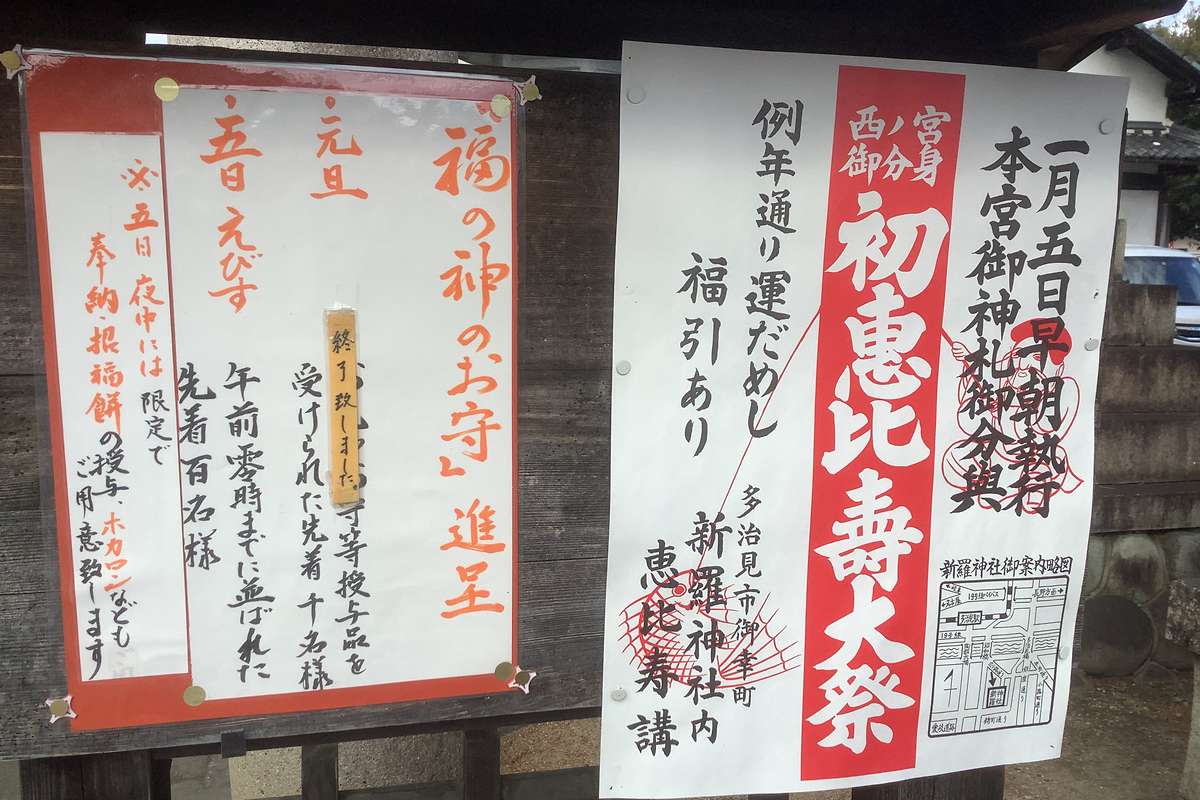 「福の神のお守」進呈
・元旦
守等授与品を
受けられた先着千名様
終了致しました。
・五日えびす
午前零時までに並ばれた
先着百名様
※五日夜中には限定で
奉納・招福餅の授与、ホカロンなども
ご用意致します
一月五日早朝執行
本宮御神札御分與
西ノ宮
御分身
初恵比壽大祭
例年通り運だめし
福引あり
多治見市御幸町
新羅神社内
恵比寿講
新羅神社御案内略図
19号バイパス
長野方面
19号線